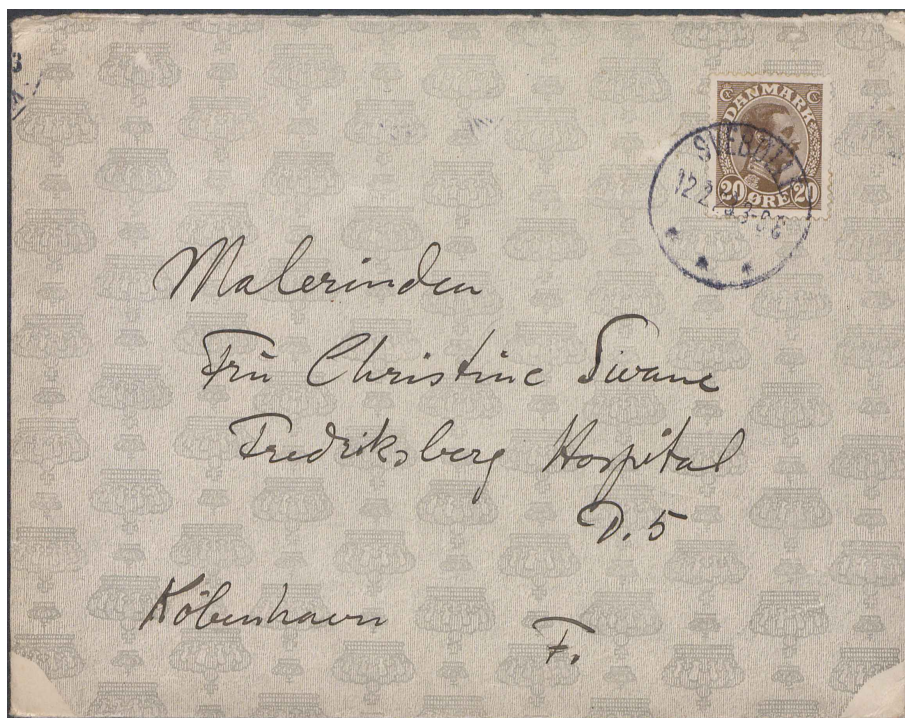 DANMARK
20 ØRE 20
12.2.
Malerinden
Frü Christine Swane
Fredriksberg Hospital
D. 5
København
F.